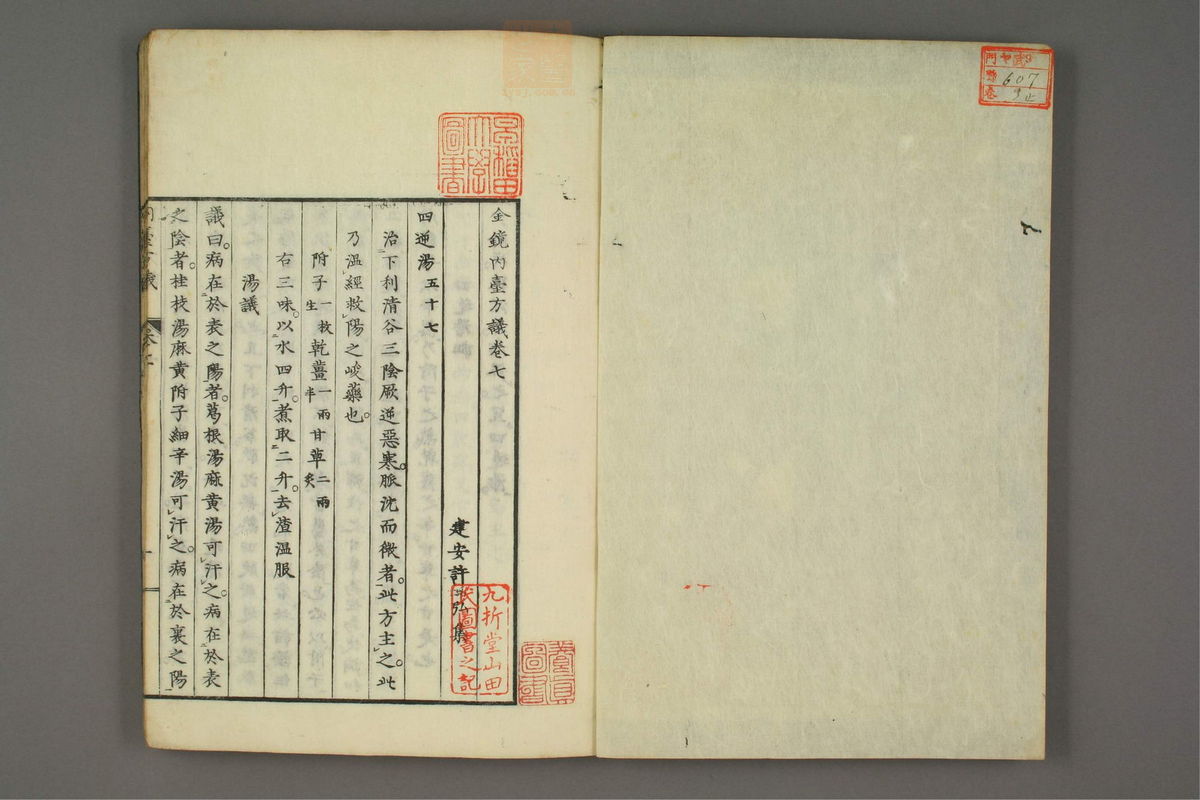 門 號 卷
607
9
早稻田大學圖書
金鏡內臺方議卷七
建安許弘集
九折堂山田氏圖書之記
四逆湯五十七
治下利清谷三陰厥逆惡寒。脈沈而微者。此方主之。此
乃溫經救陽之峻藥也。
附子一枚生乾薑一兩半甘草二兩炙
右三味。以水四升。煮取二升。去渣溫服
湯議
議曰。病在於表之陽者。葛根湯麻黃湯可汗之。病在於表
之陰者。桂枝湯麻黃附子細辛湯可汗之。病在於裏之陽